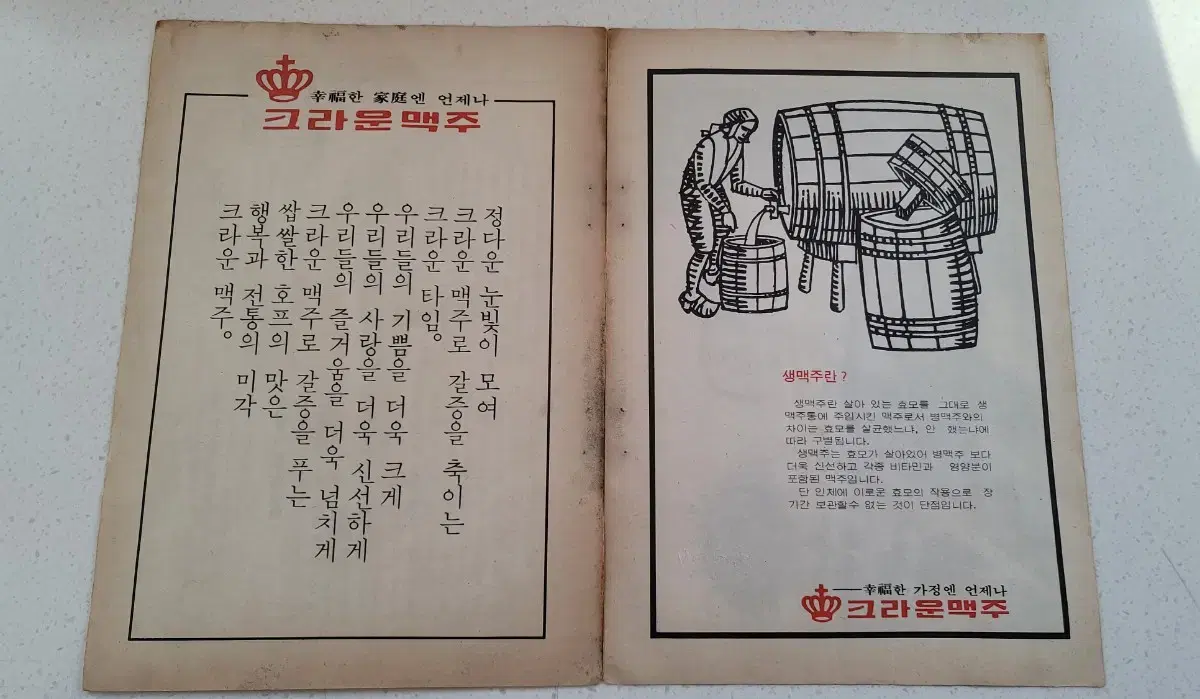 幸福한 家庭엔 언제나
크라운맥주
정다운 눈빛이 모여
크라운 맥주로 갈증을 축이는
크라운 타임.
우리들의 기쁨을 더욱 크게
우리들의 사랑을 더욱 신선하게
우리들의 즐거움을 더욱 넘치게
크라운 맥주로 갈증을 푸는
쌉쌀한 호프의 맛은
행복과 전통의 미각
크라운 맥주.
생맥주란?
생맥주란 살아 있는 효모를 그대로 생
맥주통에 주입시킨 맥주로서 병맥주와의
차이는 효모를 살균했느냐, 안 했느냐에
따라 구별됩니다.
생맥주는 효모가 살아있어 병맥주 보다
더욱 신선하고 각종 비타민과 영양분이
포함된 맥주입니다.
단 인체에 이로운 효모의 작용으로 장
기간 보관할수 없는 것이 단점입니다.
幸福한 가정엔 언제나
크라운맥주